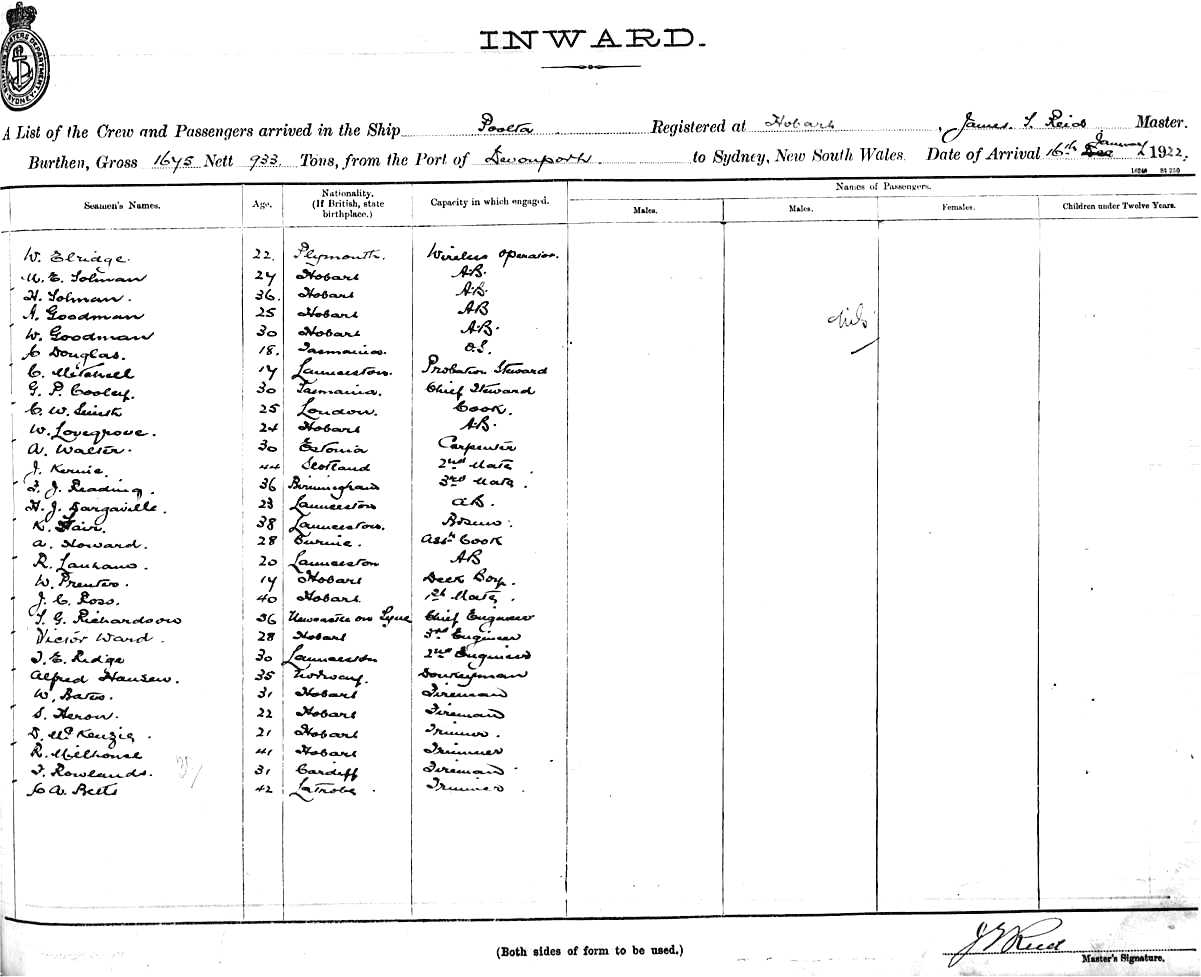 SHIPPING MASTERS DEPARTMENT SYDNEY
INWARD.
A List of the Crew and Passengers arrived in the Ship Poolta Registered at Hobart, James. S. Reid Master.
Burthen, Gross 1645 Nett 933 Tons, from the Port of Devonport. to Sydney, New South Wales. Date of Arrival 16th January 1922.
Seamen's Names. Age. Nationality. (If British, state birthplace.) Capacity in which engaged. Names of Passengers.
Males. Males. Females. Children under Twelve Years.
W. Elridge. 22. Plymouth. Wireless Operator.
M. E. Solman 27 Hobart A.B.
H. Solman. 36. Hobart A.B.
A. Goodman 25 Hobart AB
W. Goodman 30 Hobart A.B.
C Douglas. 18. Tasmania. O.S.
C. Mitchell 17 Launceston. Probation Steward
G. P. Cooley. 30 Tasmania. Chief Steward
C. W. 25 London. Cook.
W. Lovegrove. 24 Hobart A.B.
A. Walter. 30 Estonia Carpenter
J. 44 Scotland 2nd Mate
J. Reading. 36 Birmingham 3rd Mate.
H. J. Dargaville. 23 Launceston A.B.
K. Hair. 38 Launceston. Bosun.
A. Howard. 28 Burnie. Asst Cook
R. Lanham. 20 Launceston AB
W. 17 Hobart Deck Boy.
J. C. Ross. 40 Hobart 1st Mate.
G. Richardson 36 Newcastle on Tyne Chief Engineer
Victor Ward. 28 Hobart 3rd Engineer
E. Ridge 30 Launceston 2nd Engineer
Alfred Hansen. 35 Norway. Donkeyman
W. Bates. 31 Hobart Fireman
S. Heron. 22 Hobart Fireman
D. McKenzie. 21 Hobart Trimmer.
R. Milhouse 41 Hobart Trimmer
Rowlands. 31 Cardiff Fireman
C A. Betts 42 Latrobe. Trimmer
(Both sides of form to be used.)
J S Reid
Master's Signature.